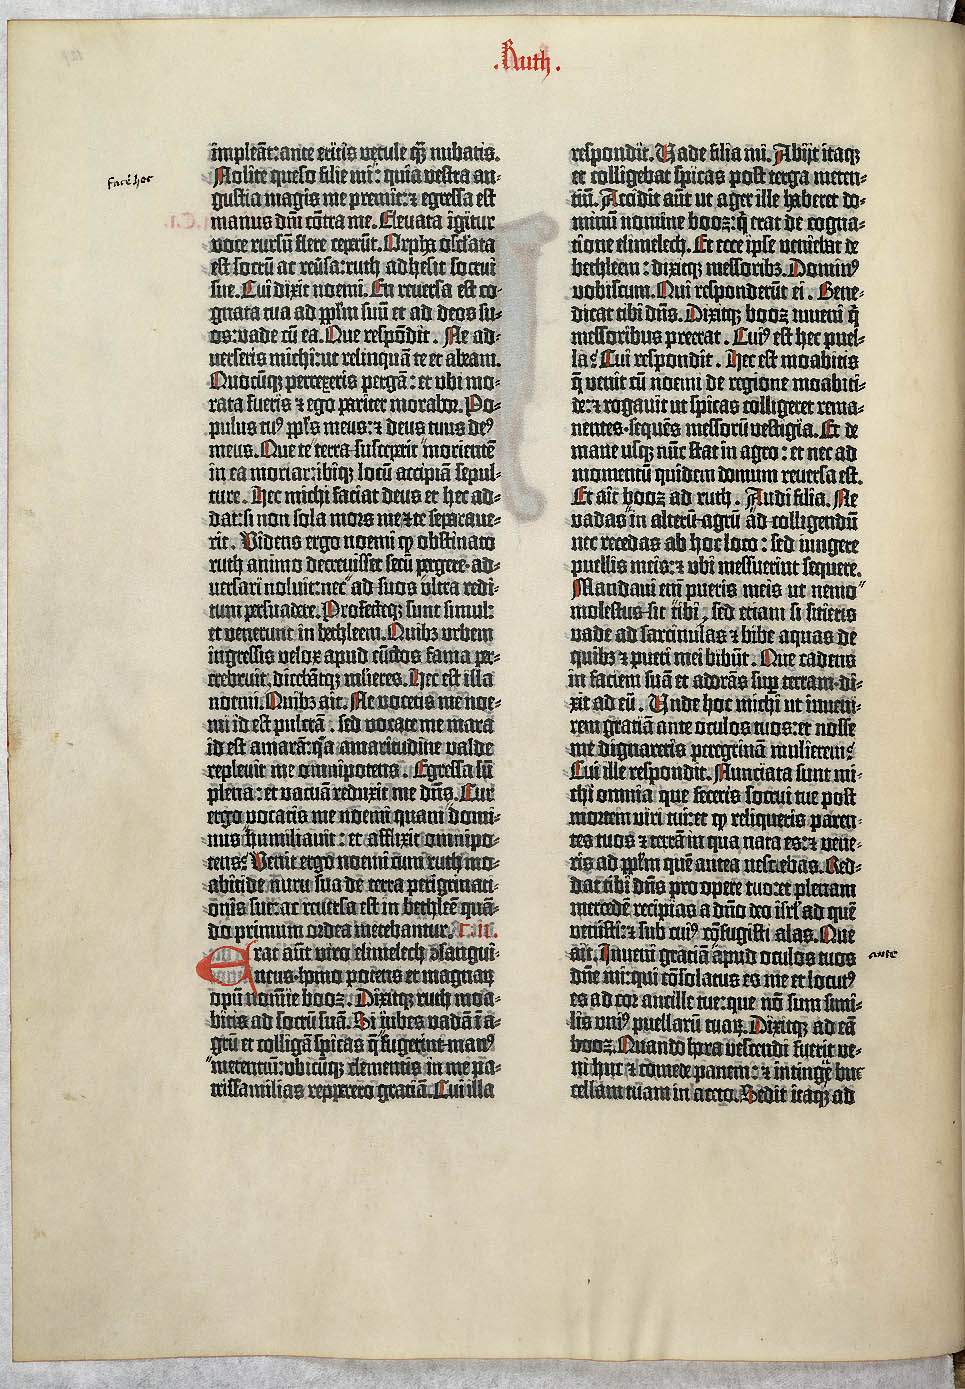 .Ruth.
impleãt: ante eritis vetule q̃ nubatis.
facere hoc
Nolite queso filie mi: quia vestra an-
gustia magis me premit: ⁊ egressa est
manus dñi cõtra me. Eleuata igitur
voce rursũ flere ceperũt. Orpha osclata
est socrũ ac reũsa: ruth adhesit socrui
sue. Cui dixit noemi. En reuersa est co-
gnata tua ad pplm suũ et ad deos su-
os: vade cũ ea. Que respõdit. Ne ad-
uerseris michi: ut relinquã te et abeam.
Quocũqꝫ perrexeris pergã: et vbi mo-
rata fueris ⁊ ego pariter morabor. Po-
pulus tuꝰ ppls meus: ⁊ deus tuus deꝰ
meus. Que te terra susceperit morientẽ
in ea moriar: ibiqꝫ locũ accipiã sepul-
ture. Hec michi faciat deus et hec ad-
dat: si non sola mors me ⁊ te separaue-
rit. Videns ergo noemi ꝙ obstinato
ruth animo decreuisset secũ pergere: ad-
uersari noluit: nec ad suos vltra redi-
tum persuadere. Profecteqꝫ sunt simul:
et venerunt in bethleem. Quibꝫ vrbem
ingressis velox apud cũctos fama per-
crebruit, dicebãtqꝫ mlieres. Hec est illa
noemi. Quibꝫ ait. Ne vocetis me noe-
mi id est pulcrã: sed vocate me mara
id est amarã: q̃a amaritudine valde
repleuit me omnipotens. Egressa sũ
plena: et vacuã reduxit me dñs. Cur
ergo vocatis me noemi quam domi-
nus humiliauit: et afflixit omnipo-
tens? Venit ergo noemi cum ruth mo-
abitide nuru sua de terra peregrinati-
onis sue: ac reuersa est in bethleẽ quã-
do primum ordea metebantur. C. II.
Erat aũt viro elimelech ꝯsangui-
neus homo potens et magnaꝝ
opũ nomine booz. Dixitqꝫ ruth moa-
bitis ad socrũ suã. Si iubes vadã ĩ a-
grũ et colligã spicas q̃ fugerint manꝰ
metentiũ: vbicũqꝫ clementis in me pa-
trisfamilias reppereo gratiã. Cui illa
respondit. Vade filia mi. Abijt itaqꝫ
et colligebat spicas post terga meten-
tiũ. Accidit aũt ut ager ille haberet do-
minũ nomine booz: q̃ erat de cogna-
tione elimelech. Et ecce ipse veniebat de
bethleem: dixitqꝫ messoribꝫ. Dominꝰ
vobiscum. Qui responderũt ei. Bene-
dicat tibi dñs. Dixitqꝫ booz iuueni q̃
messoribus preerat. Cuiꝰ est hec puel-
la? Cui respondit. Hec est moabitis
q̃ venit cũ noemi de regione moabiti-
de: ⁊ rogauit ut spicas colligeret rema-
nentes, sequẽs messorũ vestigia. Et de
mane usqꝫ nũc stat in agro: et nec ad
momentũ quidem domum reuersa est.
Et ait booz ad ruth. Audi filia. Ne
vadas in alterũ agrũ ad colligendũ
nec recedas ab hoc loco: sed iungere
puellis meis: ⁊ vbi messuerint sequere.
Mandaui eñi pueris meis ut nemo
molestus sit tibi, sed etiam si sitieris
vade ad sarcinulas ⁊ bibe aquas de
quibꝫ ⁊ pueri mei bibũt. Que cadens
in faciem suã et adorãs sup terram: di-
xit ad eũ. Vnde hoc michi ut inueni-
rem gratiã ante oculos tuos: et nosse
me digneris peregrinã mulierem?
Cui ille respondit. Nunciata sunt mi-
chi omnia que feceris socrui tue post
mortem viri tui: et ꝙ reliqueris paren-
tes tuos ⁊ terrã in qua nata es: ⁊ vene-
ris ad pplm quẽ antea nesciebas. Red-
dat tibi dñs pro opere tuo: et plenam
mercedẽ recipias a dño deo isrl ad quẽ
venisti: ⁊ sub cuiꝰ ꝯfugisti alas. Que
ait. Inueni gratiã apud oculos tuos
ante
dñe mi: qui cõsolatus es me et locutꝰ
es ad cor ancille tue: que nõ sum simi-
lis vniꝰ puellarũ tuaꝝ. Dixitqꝫ ad eã
booz. Quando hora vescendi fuerit ve-
ni huc ⁊ comede panem: ⁊ intinge buc
cellam tuam in aceto. Sedit itaqꝫ ad